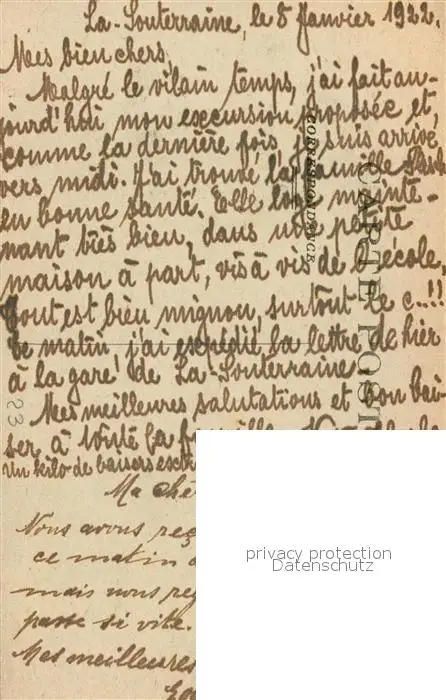 La-Souterraine, le 8 Janvier 1922.
Mes bien chers,
Malgré le vilain temps, j'ai fait au-
jourd'hui mon excursion proposée et,
comme la dernière fois, je suis arrivé
vers midi. J'ai trouvé la famille
en bonne santé. Elle loge mainte-
nant très bien, dans une petite
maison à part, vis à vis de l'école,
tout est bien mignon, surtout le c...!!
Ce matin, j'ai expédié la lettre de hier
à la gare de La-Souterraine
Mes meilleures salutations et bon bai-
ser à toute la famille.
Un kilo de baisers
Ma
Nous avons
ce matin
mais nous
passe si vite.
Mes meilleures
CORRESPONDANCE
CARTE POST
23
privacy protection
Datenschutz